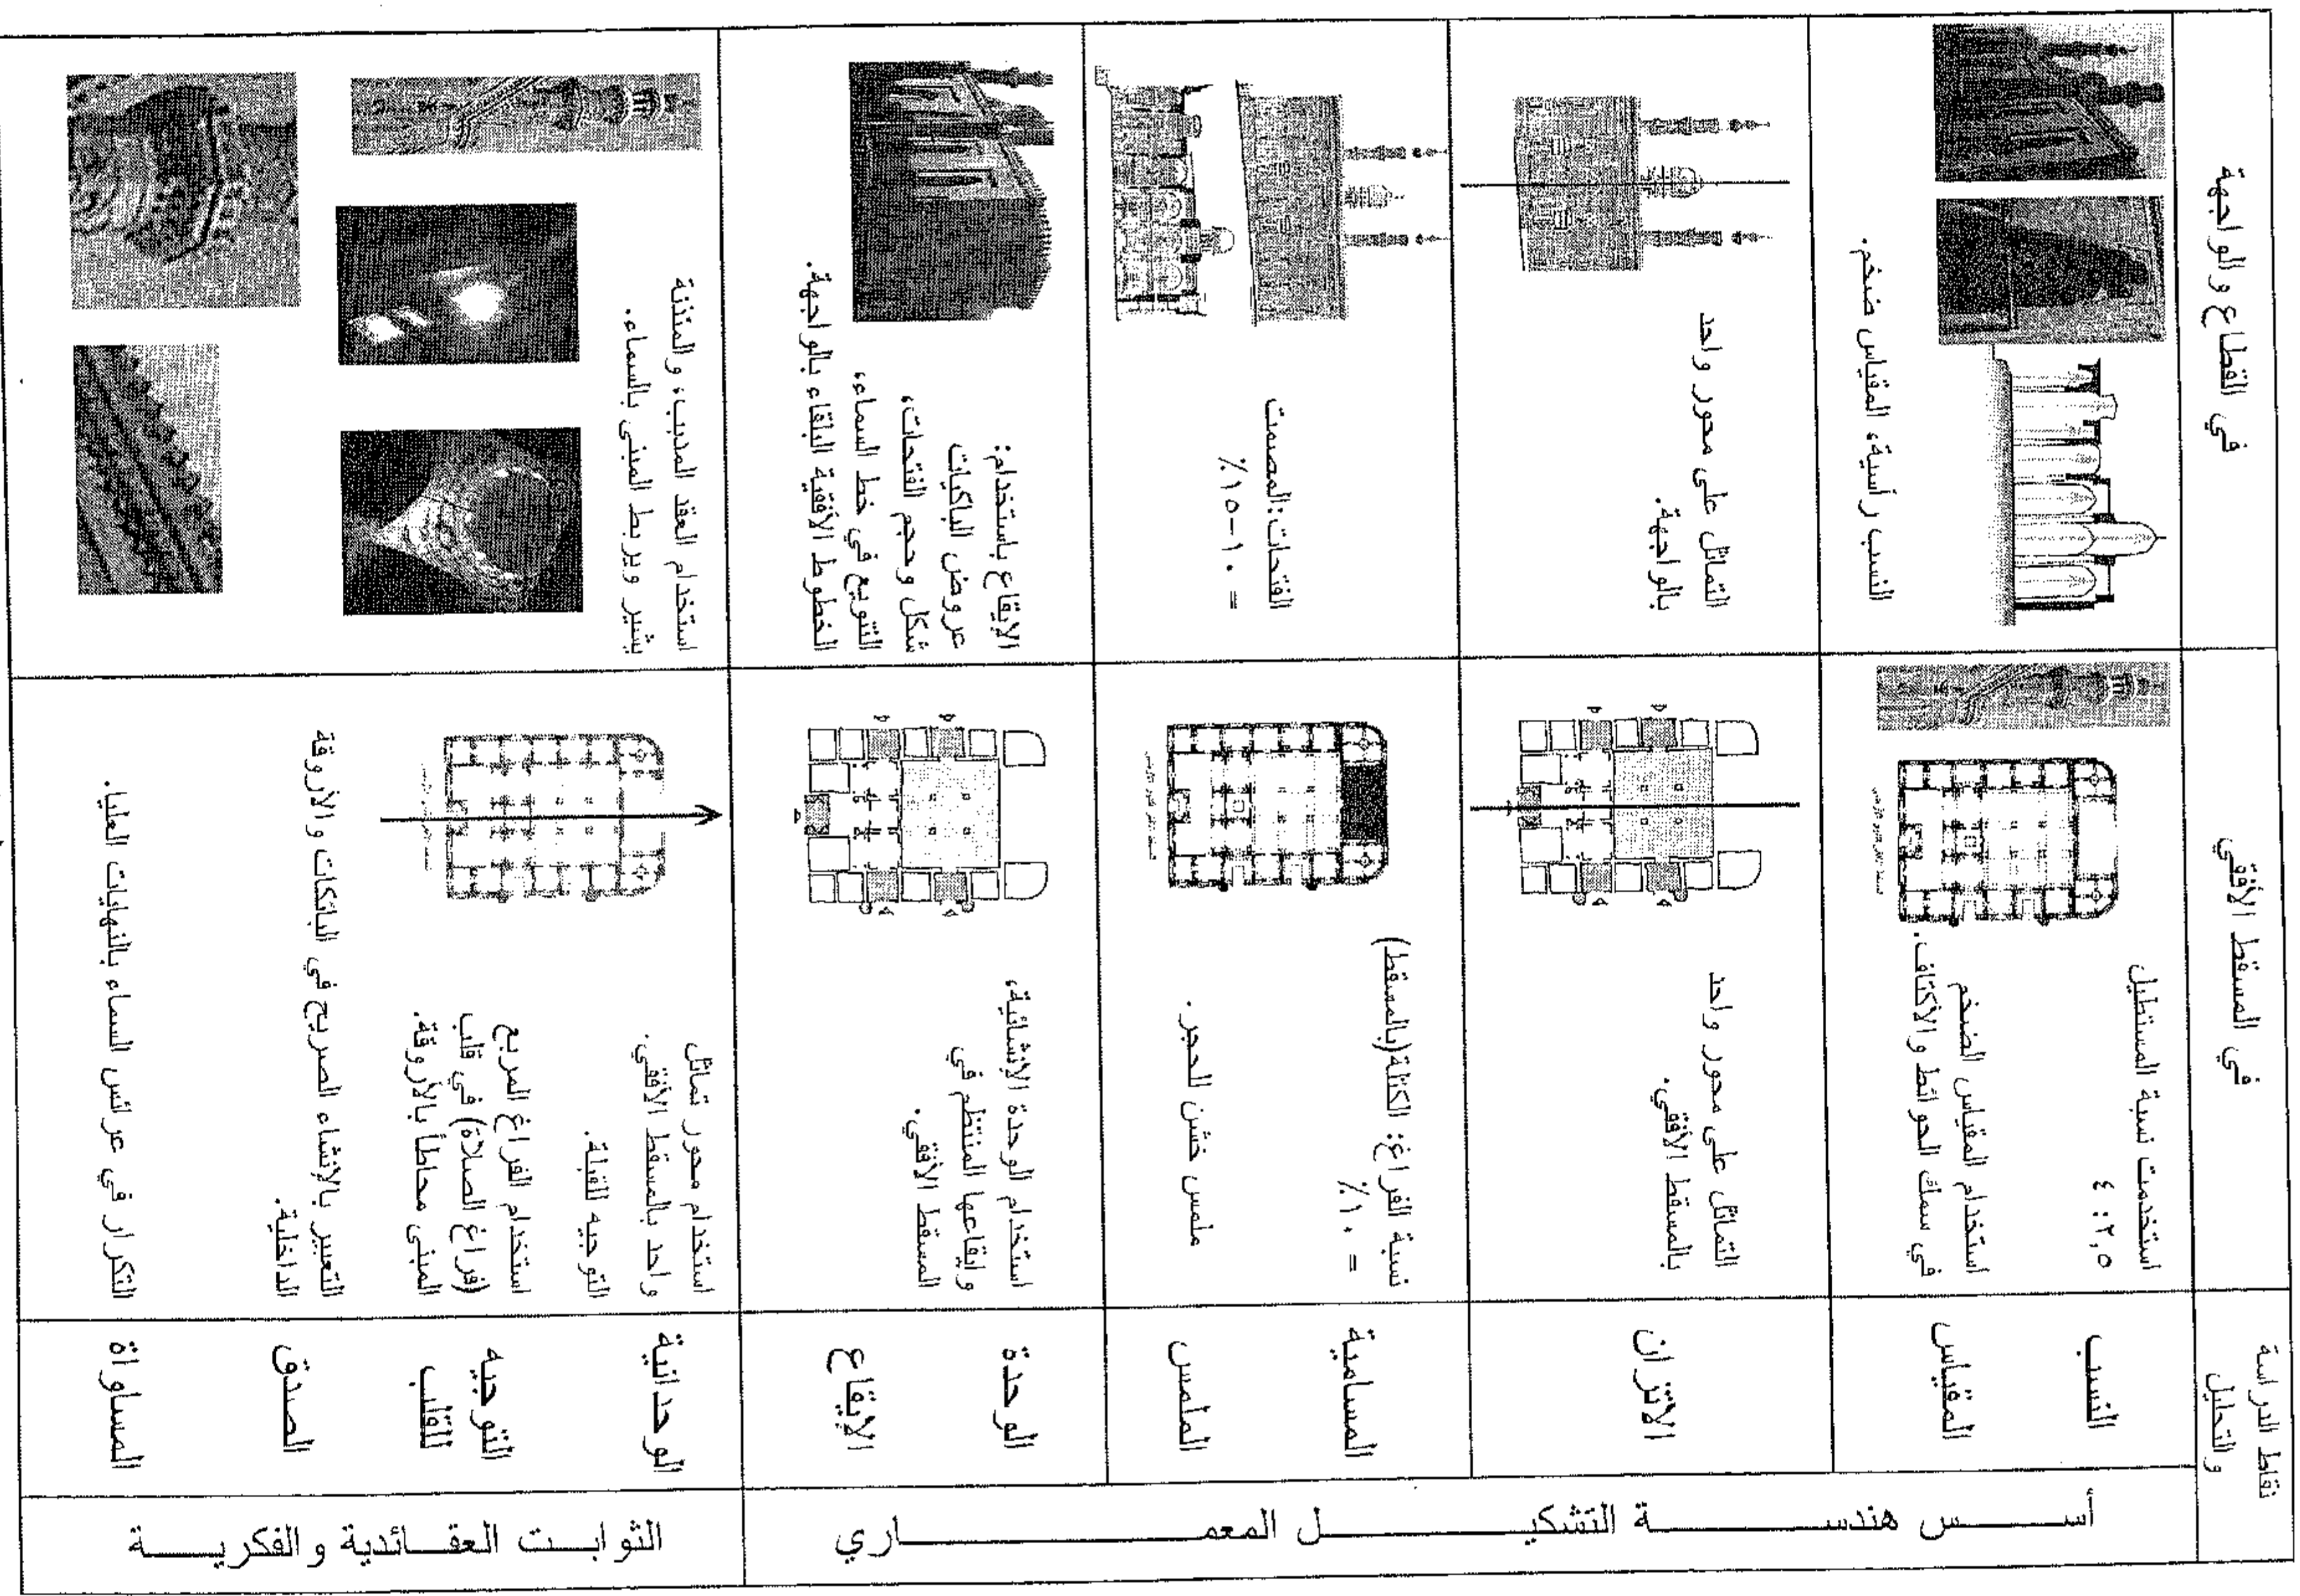 نقاط الدراسة
والتحليل
في المسقط الأفقي
في القطاع والواجهة
أسس هندسة التشكيل المعماري
النسب
استخدمت نسبة المستطيل
٢,٥ : ٤
المقياس
استخدام المقياس الضخم
في سمك الحوائط والأكتاف.
النسب رأسية، المقياس ضخم.
الاتزان
التماثل على محور واحد
بالمسقط الأفقي.
التماثل على محور واحد
بالواجهة.
المسامية
نسبة الفراغ: الكتلة(بالمسقط)
= ١٠٪
الملمس
ملمس خشن للحجر.
الفتحات:المصمت
= ١٠-١٥٪
الوحدة
الإيقاع
استخدام الوحدة الإنشائية،
وإيقاعها المنتظم في
المسقط الأفقي.
الإيقاع باستخدام:
عروض الباكيات
شكل وحجم الفتحات،
التنويع في خط السماء،
الخطوط الأفقية البلقاء بالواجهة.
الثوابت العقائدية والفكرية
الوحدانية
استخدام محور تماثل
واحد بالمسقط الأفقي.
التوجيه
للقلب
التوجيه للقبلة.
استخدام الفراغ المربع
(فراغ الصلاة) في قلب
المبنى محاطاً بالأروقة.
الصدق
التعبير بالإنشاء الصريح في البائكات والأروقة
الداخلية.
المساواة
التكرار في عرائس السماء بالنهايات العليا.
استخدام العقد المدبب، والمئذنة
يشير ويربط المبنى بالسماء.